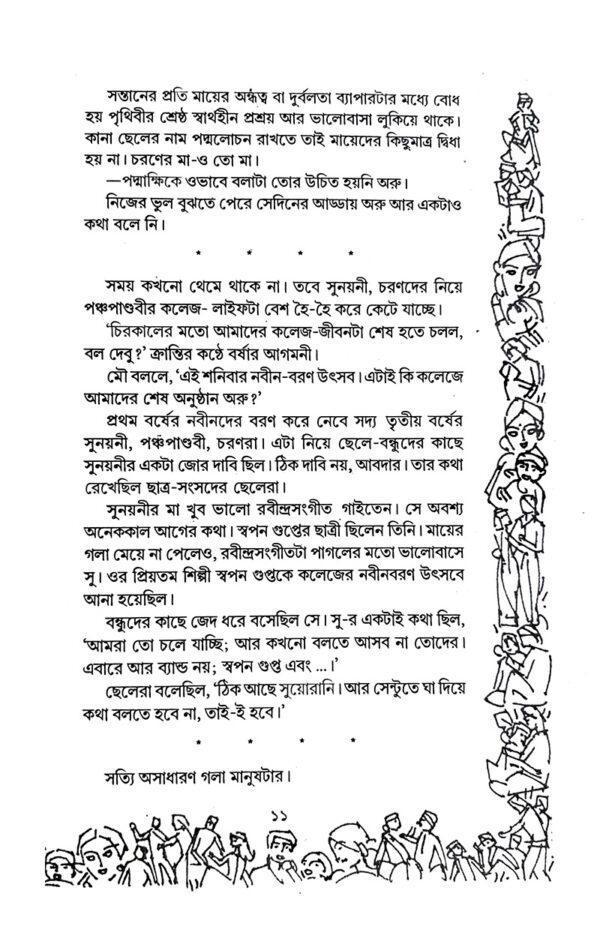 সন্তানের প্রতি মায়ের অন্ধত্ব বা দুর্বলতা ব্যাপারটার মধ্যে বোধ
হয় পৃথিবীর শ্রেষ্ঠ স্বার্থহীন প্রশ্রয় আর ভালোবাসা লুকিয়ে থাকে।
কানা ছেলের নাম পদ্মলোচন রাখতে তাই মায়েদের কিছুমাত্র দ্বিধা
হয় না। চরণের মা-ও তো মা।
—পদ্মাক্ষিকে ওভাবে বলাটা তোর উচিত হয়নি অরু।
নিজের ভুল বুঝতে পেরে সেদিনের আড্ডায় অরু আর একটাও
কথা বলে নি।
* * * *
সময় কখনো থেমে থাকে না। তবে সুনয়নী, চরণদের নিয়ে
পঞ্চপাণ্ডবীর কলেজ- লাইফটা বেশ হৈ-হৈ করে কেটে যাচ্ছে।
‘চিরকালের মতো আমাদের কলেজ-জীবনটা শেষ হতে চলল,
বল দেবু?’ ক্রান্তির কণ্ঠে বর্ষার আগমনী।
মৌ বললে, ‘এই শনিবার নবীন-বরণ উৎসব। এটাই কি কলেজে
আমাদের শেষ অনুষ্ঠান অরু?’
প্রথম বর্ষের নবীনদের বরণ করে নেবে সদ্য তৃতীয় বর্ষের
সুনয়নী, পঞ্চপাণ্ডবী, চরণরা। এটা নিয়ে ছেলে-বন্ধুদের কাছে
সুনয়নীর একটা জোর দাবি ছিল। ঠিক দাবি নয়, আবদার। তার কথা
রেখেছিল ছাত্র-সংসদের ছেলেরা।
সুনয়নীর মা খুব ভালো রবীন্দ্রসংগীত গাইতেন। সে অবশ্য
অনেককাল আগের কথা। স্বপন গুপ্তের ছাত্রী ছিলেন তিনি। মায়ের
গলা মেয়ে না পেলেও, রবীন্দ্রসংগীতটা পাগলের মতো ভালোবাসে
সু। ওর প্রিয়তম শিল্পী স্বপন গুপ্তকে কলেজের নবীনবরণ উৎসবে
আনা হয়েছিল।
বন্ধুদের কাছে জেদ ধরে বসেছিল সে। সু-র একটাই কথা ছিল,
‘আমরা তো চলে যাচ্ছি; আর কখনো বলতে আসব না তোদের।
এবারে আর ব্যান্ড নয়; স্বপন গুপ্ত এবং ...।’
ছেলেরা বলেছিল, ‘ঠিক আছে সুয়োরানি। আর সেন্টুতে ঘা দিয়ে
কথা বলতে হবে না, তাই-ই হবে।’
* * * *
সত্যি অসাধারণ গলা মানুষটার।
১১